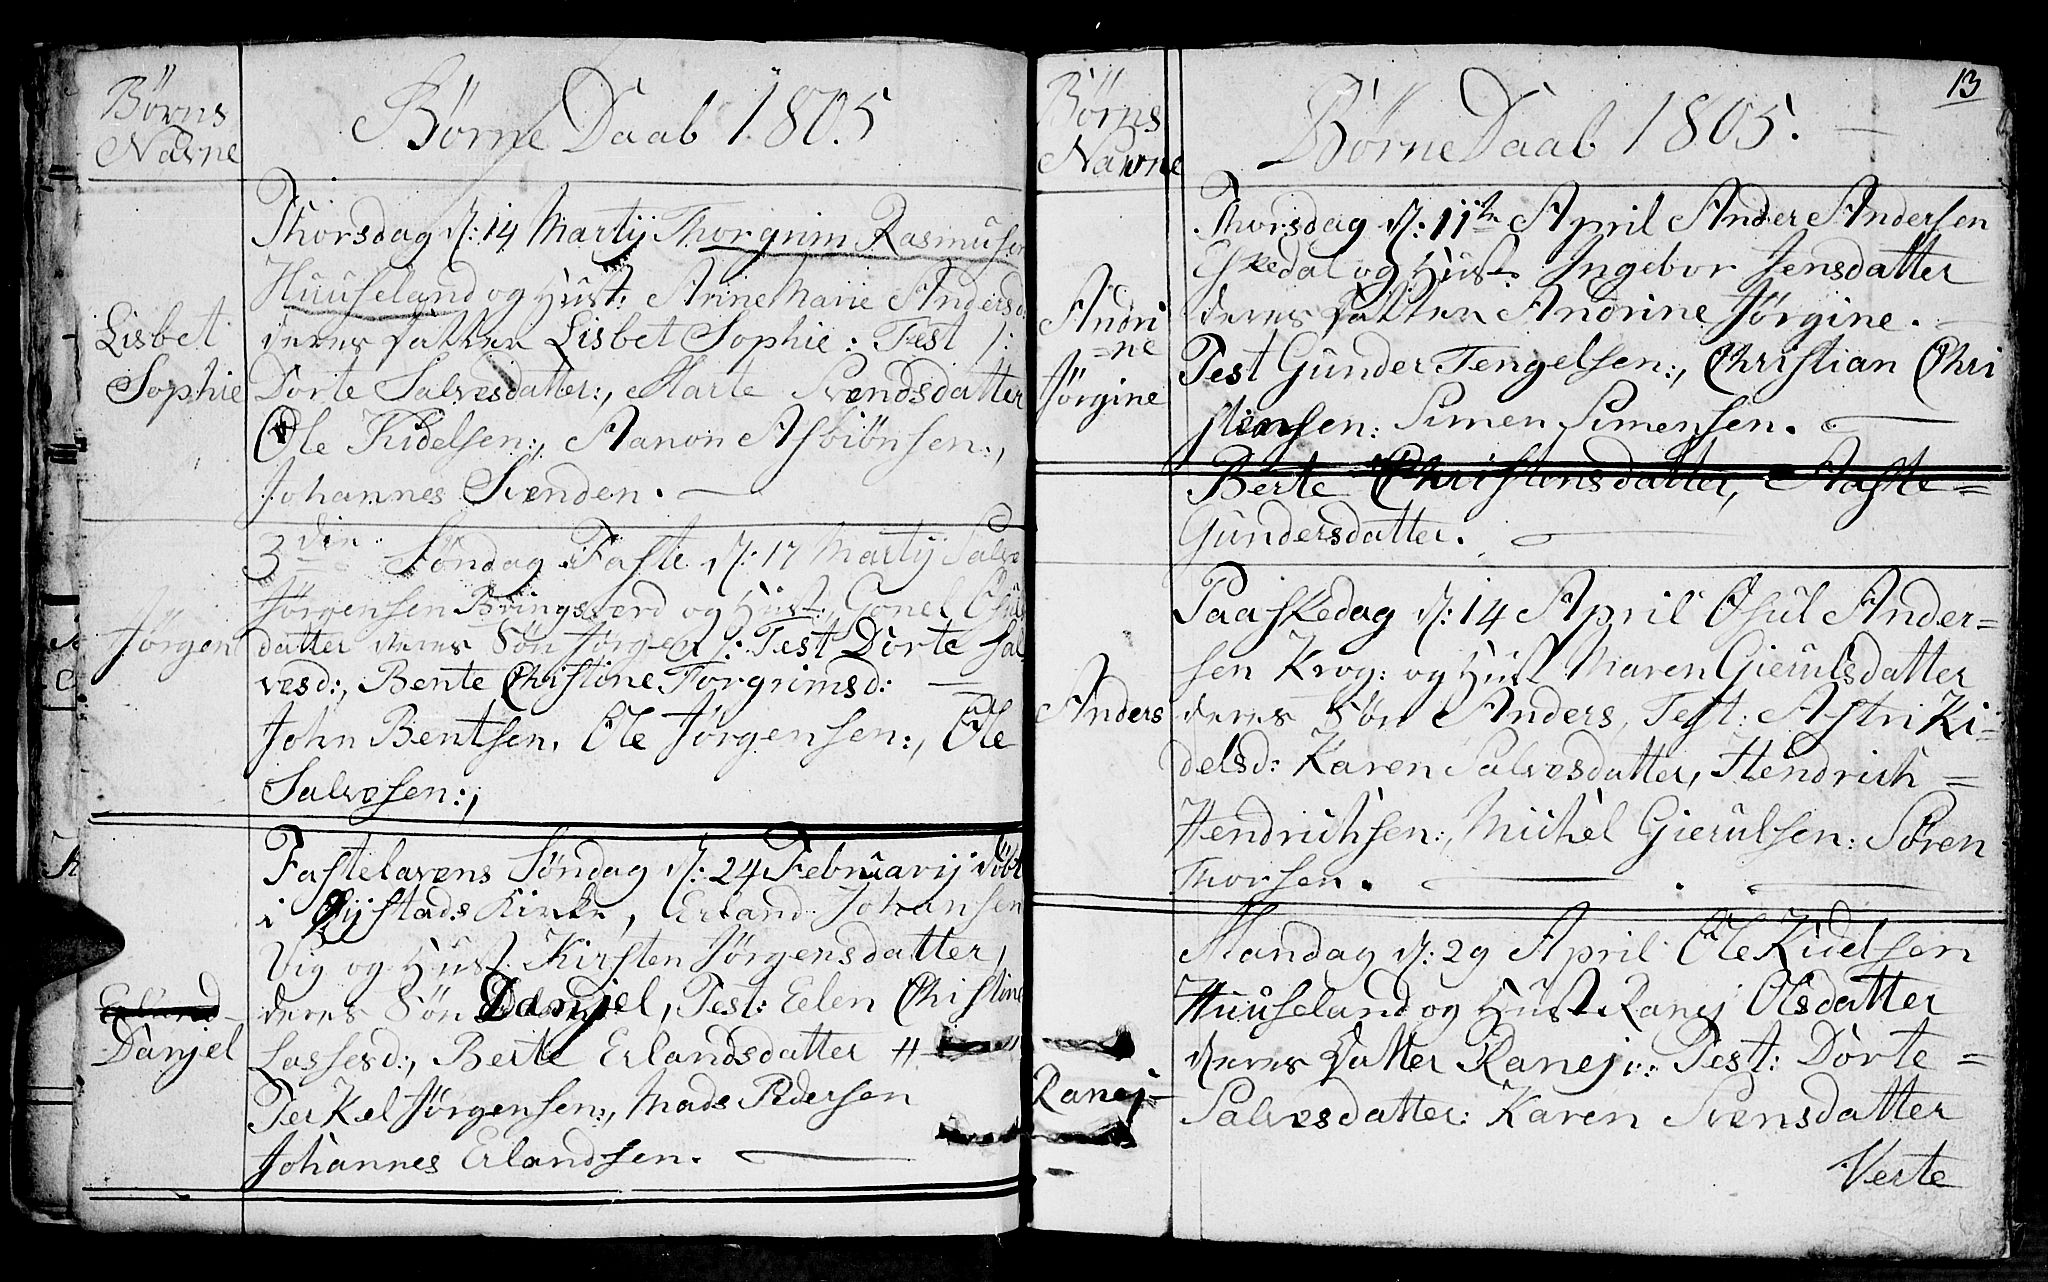 Børns
Navne
Børne Daab 1805
Thorsdag d: 14 Martij Thorgrim Rasmusen
Huuseland og Hust: Anne Marie Andersd:
Lisbet
Sophie
deres datter Lisbet Sophie: Test /:
Dorte Salvesdatter:, Marte Svendsdatter
Ole Kidelsen:, Aanon Asbiønsen:,
Johannes Svenden.
3die Søndag i Faste d: 17 Martij Salve
Jørgensen Bringsverd og Hust: Gonel Osuls
Jørgen
datter deres Søn Jørgen /: Test Dorte Sal
vesd:, Bente Christine Torgrimsd:
John Bentsen, Ole Jørgensen:, Ole
Salvesen:,
Fastelavens Søndag d: 24 Februarij døbt
i Fijstads Kirke, Erland Johansen
Vig og Hust. Kirsten Jørgensdatter,
Erland
Danjel
deres Søn Danjel, Test: Eelen Christine
Lassesd:, Berte Erlandsdatter
Terkel Jørgensen:, Mads Pedersen
Johannes Erlandsen.
13
Børns
Navne
Børne Daab 1805.
Thorsdag d: 11te April Ander Andersen
Eskedal og Hust: Ingebor Jensdatter
Andri
=ne
Jørgine
deres datter Andrine Jørgine.
Test Gunder Tengelsen:, Christian Chri
stensen: Simen Simensen.
Berte Christensdatter, Aaste=
Gundersdatter.
Paaskedag d: 14 April Osul Ander=
sen Krog: og Hust Maren Gierulsdatter
Anders
deres Søn Anders, Test: Astri Ki=
delsd: Karen Salvesdatter, Hendrich=
Hendrichsen:, Michel Gierulsen: Søren
Thorsen.
Mandag d: 29 April Ole Kidelsen
Huuseland og Hust Ranej Olsdatter
Ranej
deres Datter Ranej:: Test: Dorte=
Salvesdatter: Karen Svensdatter
Verte